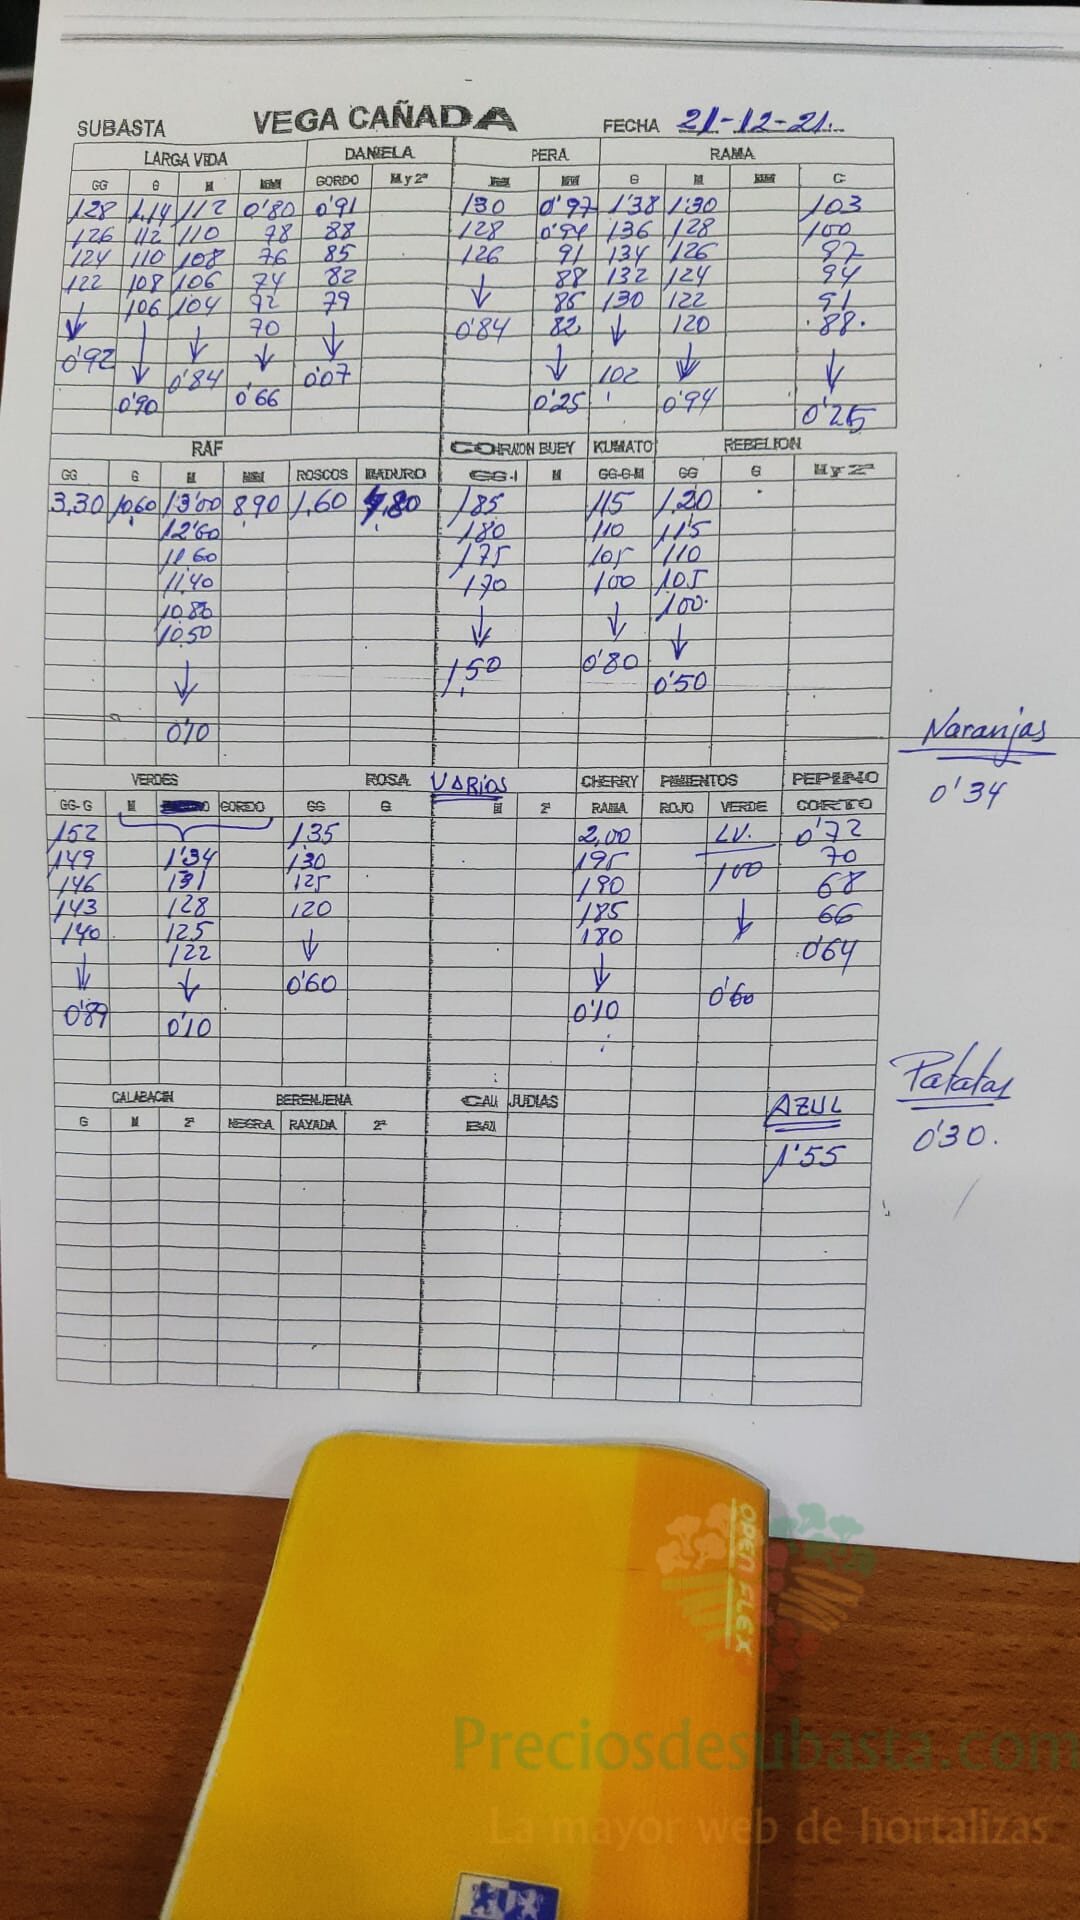 SUBASTA VEGA CAÑADA FECHA 21-12-21.
LARGA VIDA DANIELA PERA RAMA
GG G M MM GORDO M y 2ª MM G M MM C
128 1,14 112 0'80 0'91 130 0'97 1'38 1'30 103
126 112 110 78 88 128 0'94 136 128 100
124 110 108 76 85 126 91 134 126 97
122 108 106 74 82 ↓ 88 132 124 94
↓ 106 104 72 79 0'84 85 130 122 91
↓ ↓ 70 ↓ 82 ↓ 120 88.
0'92 ↓ 0'84 ↓ 0'07 ↓ 102 ↓ ↓
0'90 0'66 0'25 0'94 0'25
RAF CORAZON BUEY KUMATO REBELION
GG G M MM ROSCOS MADURO GG-1 M GG-G-M GG G M y 2ª
3,30 10,60 13'00 8,90 1,60 1,80 185 115 1,20
12'60 180 110 115
11,60 175 105 110
11,40 170 100 105
10,80 ↓ ↓ 100.
10,50 1,50 0'80 ↓
↓ 0'50
0'10
Naranjas
0'34
VERDES ROSA VARIOS CHERRY PIMIENTOS PEPINO
GG-G M GORDO GG G M 2ª RAMA ROJO VERDE CORTO
152 135 2,00 LV. 0'72
149 1'34 130 195 100 70
146 131 125 190 ↓ 68
143 128 120 185 66
140 125 ↓ 180 0'64
↓ 122 0'60 ↓ 0'60
0'89 ↓ 0'10
0'10
Patatas
0'30.
CALABACIN BERENJENA CALA JUDIAS AZUL
G M 2ª NEGRA RAYADA 2ª BAZA
1'55
OPEN FLEX
Preciosdesubasta.com
La mayor web de hortalizas